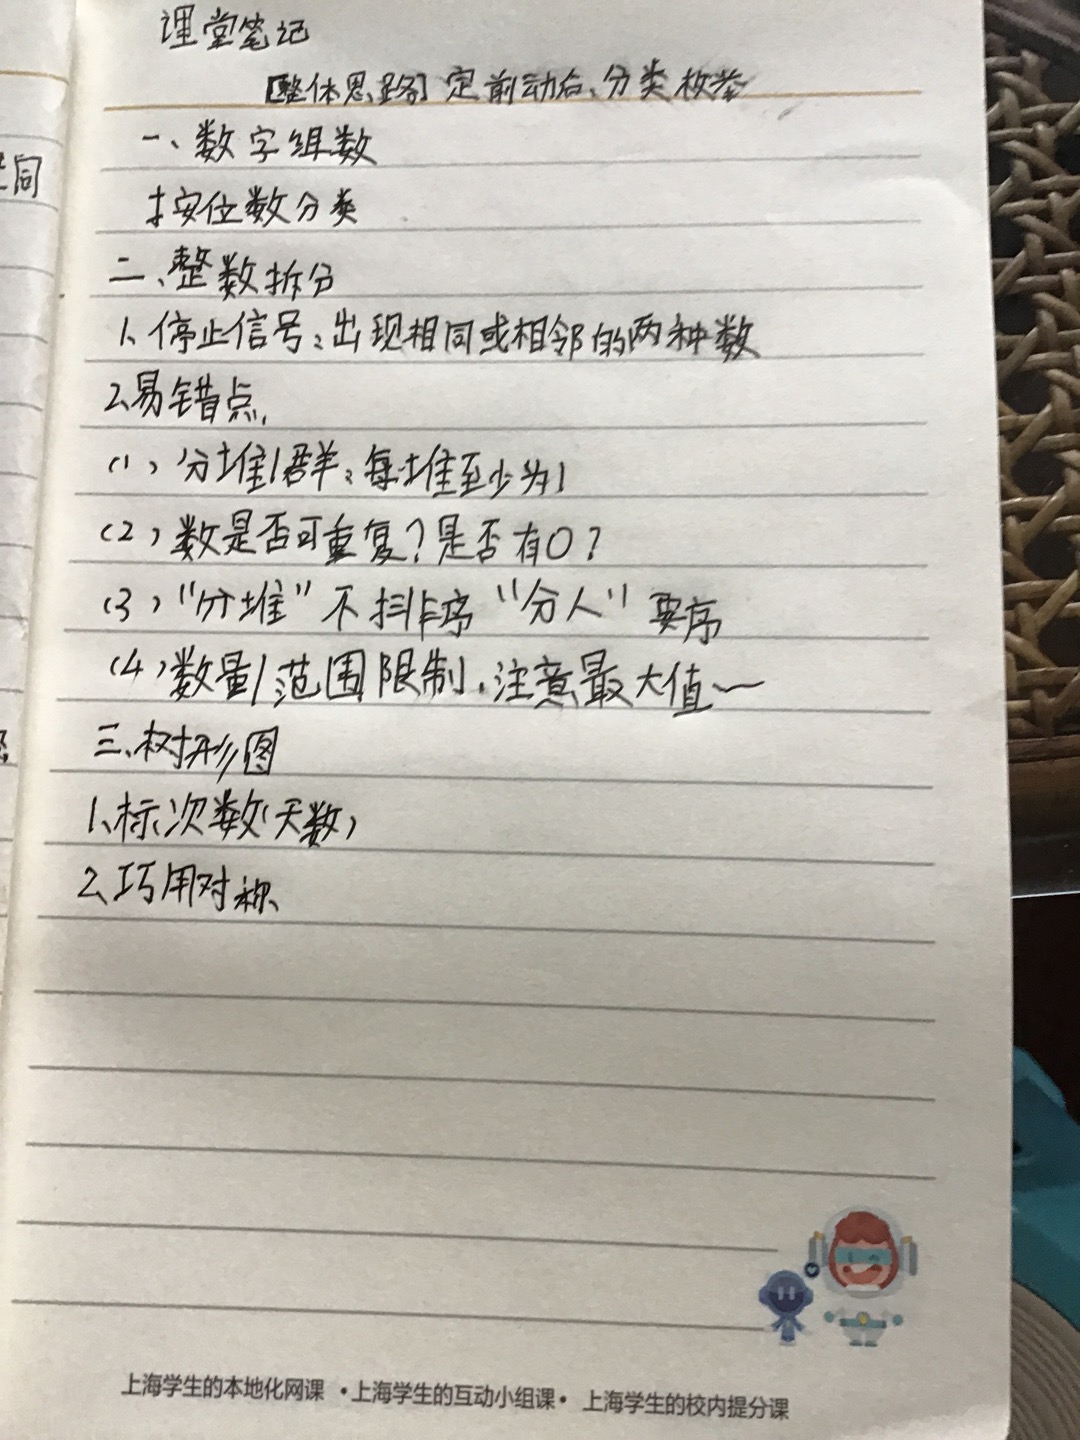 课堂笔记
[整体思路] 定前动后、分类枚举
一、数字组数
按位数分类
二、整数拆分
1、停止信号:出现相同或相邻的两种数
2、易错点、
(1)分堆/群:每堆至少为1
(2)数是否可重复?是否有0?
(3)"分堆"不排序"分人"要序
(4)数量/范围限制,注意最大值~
三、树形图
1、标次数(天数)
2、巧用对称
同
上海学生的本地化网课 •上海学生的互动小组课• 上海学生的校内提分课